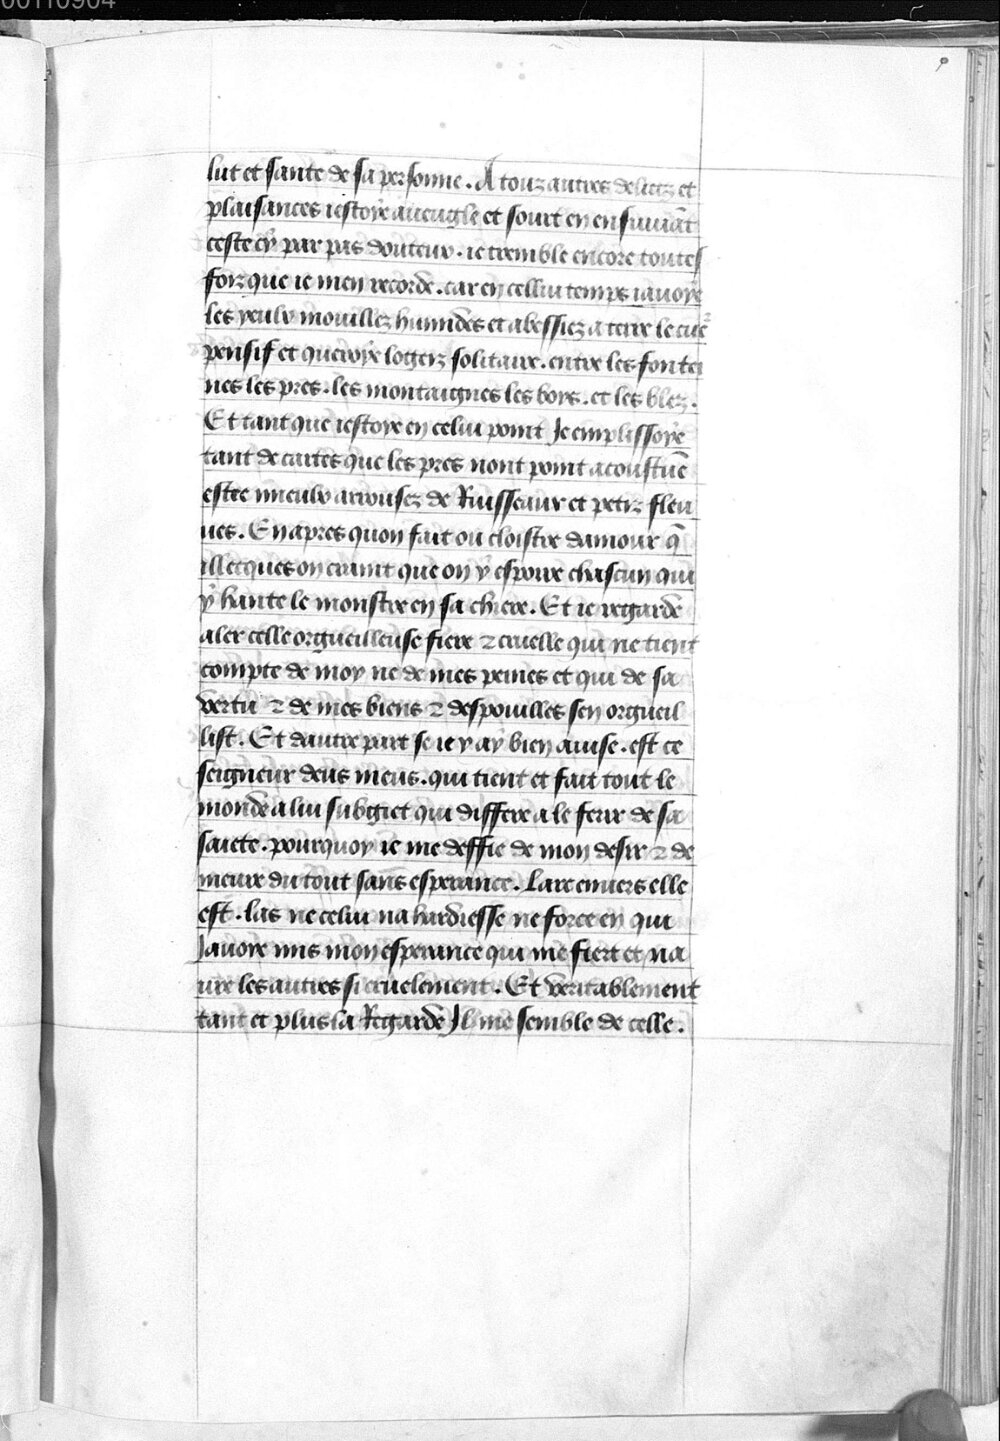 00110904
9
lut et sante de sa personne . A touz autres delitz et
plaisances iestoye aueugle et sourt en ensuiuãt
ceste cy par pas douteux . ie tremble encore toutes
foiz que ie men recorde . car en cellui temps iauoye
les yeulx mouillez humides et abessiez a terre le cue
pensif et queroye logeiz solitaire . entre les fontei
nes les pres . les montaignes les boys . et les blez .
Et tant que iestoye en celui point Je emplissoye
tant de cartes que les pres nont point acoustue
estre mieulx arrousez de Ruisseaux et petiz fleu
ues . En apres quon fait ou cloistre damour q̃
illecques on craint que on y espoire chascun qui
y hante le monstre en sa chiere . Et ie regarde
aler celle orgueilleuse fiere ⁊ cruelle qui ne tient
compte de moy ne de mes peines et qui de sa
vertu ⁊ de mes biens ⁊ despouilles sen orgueil
list . Et dautre part se ie y ay bien auise . est ce
seigneur deus meus . qui tient et fait tout le
monde a lui subgiet qui differe a le ferir de sa
saiete . pourquoy ie me deffie de mon desir ⁊ de
meure du tout sans esperance . Lare enuers elle
est . las ne celui na hardiesse ne force en qui
Jauoye mis mon esperance qui me fiert et na
ure les autres si cruelement . Et veritablement
tant et plus la Regarde Jl me semble de celle .